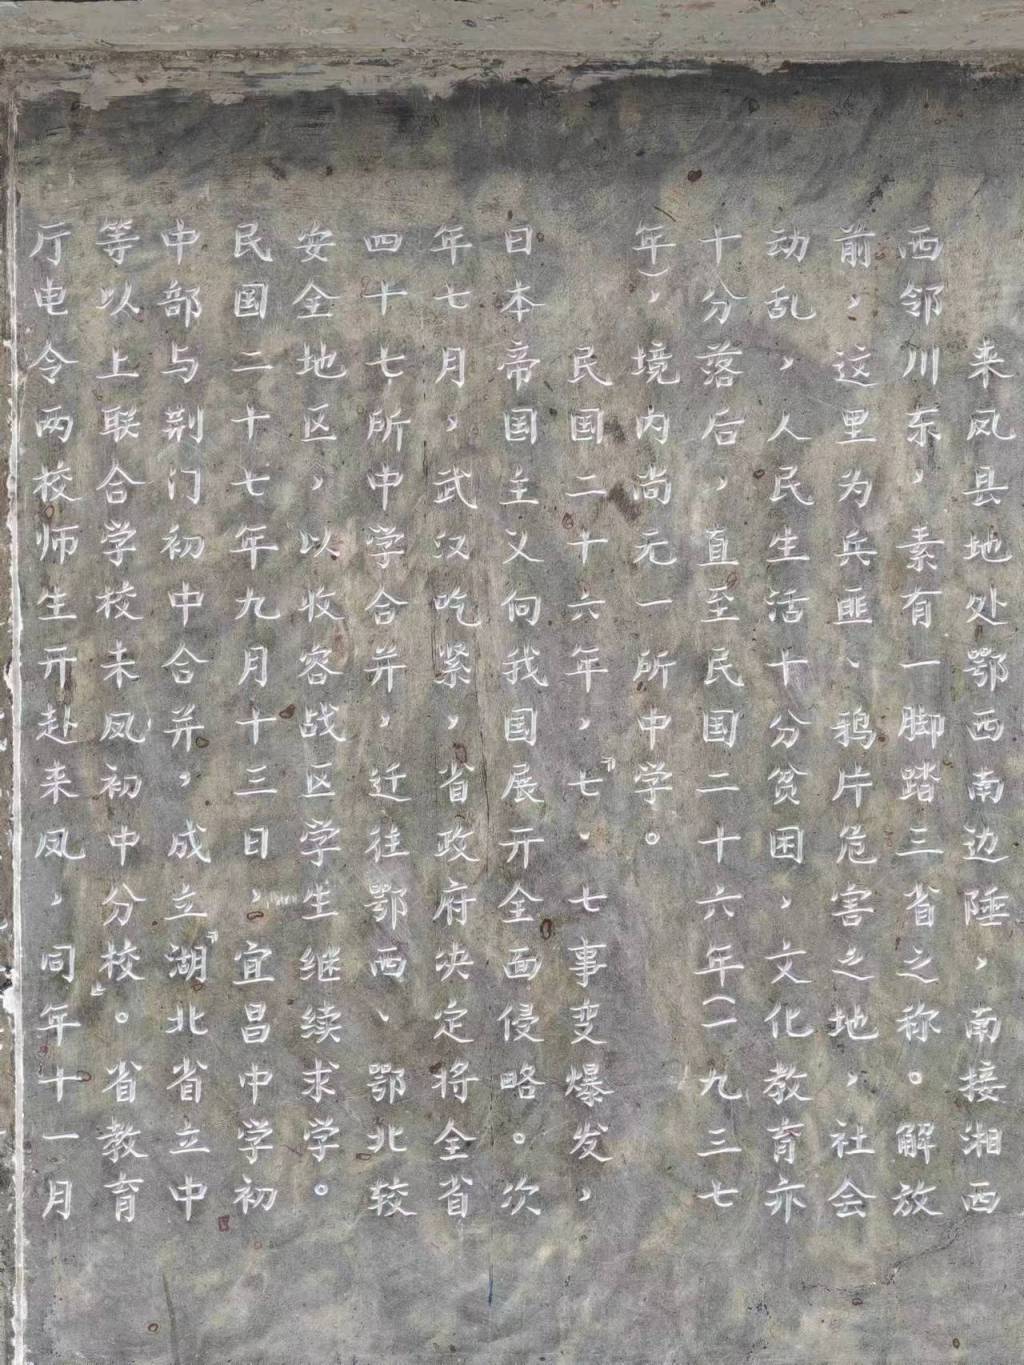 来凤县地处鄂西南边陲，南接湘西
西邻川东，素有一脚踏三省之称。解放
前，这里为兵匪、鸦片危害之地，社会
动乱，人民生活十分贫困，文化教育亦
十分落后，直至民国二十六年（一九三七
年），境内尚无一所中学。
民国二十六年，“七、七事变爆发，
日本帝国主义向我国展开全面侵略。次
年七月，武汉吃紧，省政府决定将全省
四十七所中学合并，迁往鄂西、鄂北较
安全地区，以收容战区学生继续求学。
民国二十七年九月十三日，宜昌中学初
中部与荆门初中合并，成立“湖北省立中
等以上联合学校来凤初中分校”。省教育
厅电令两校师生开赴来凤，同年十一月